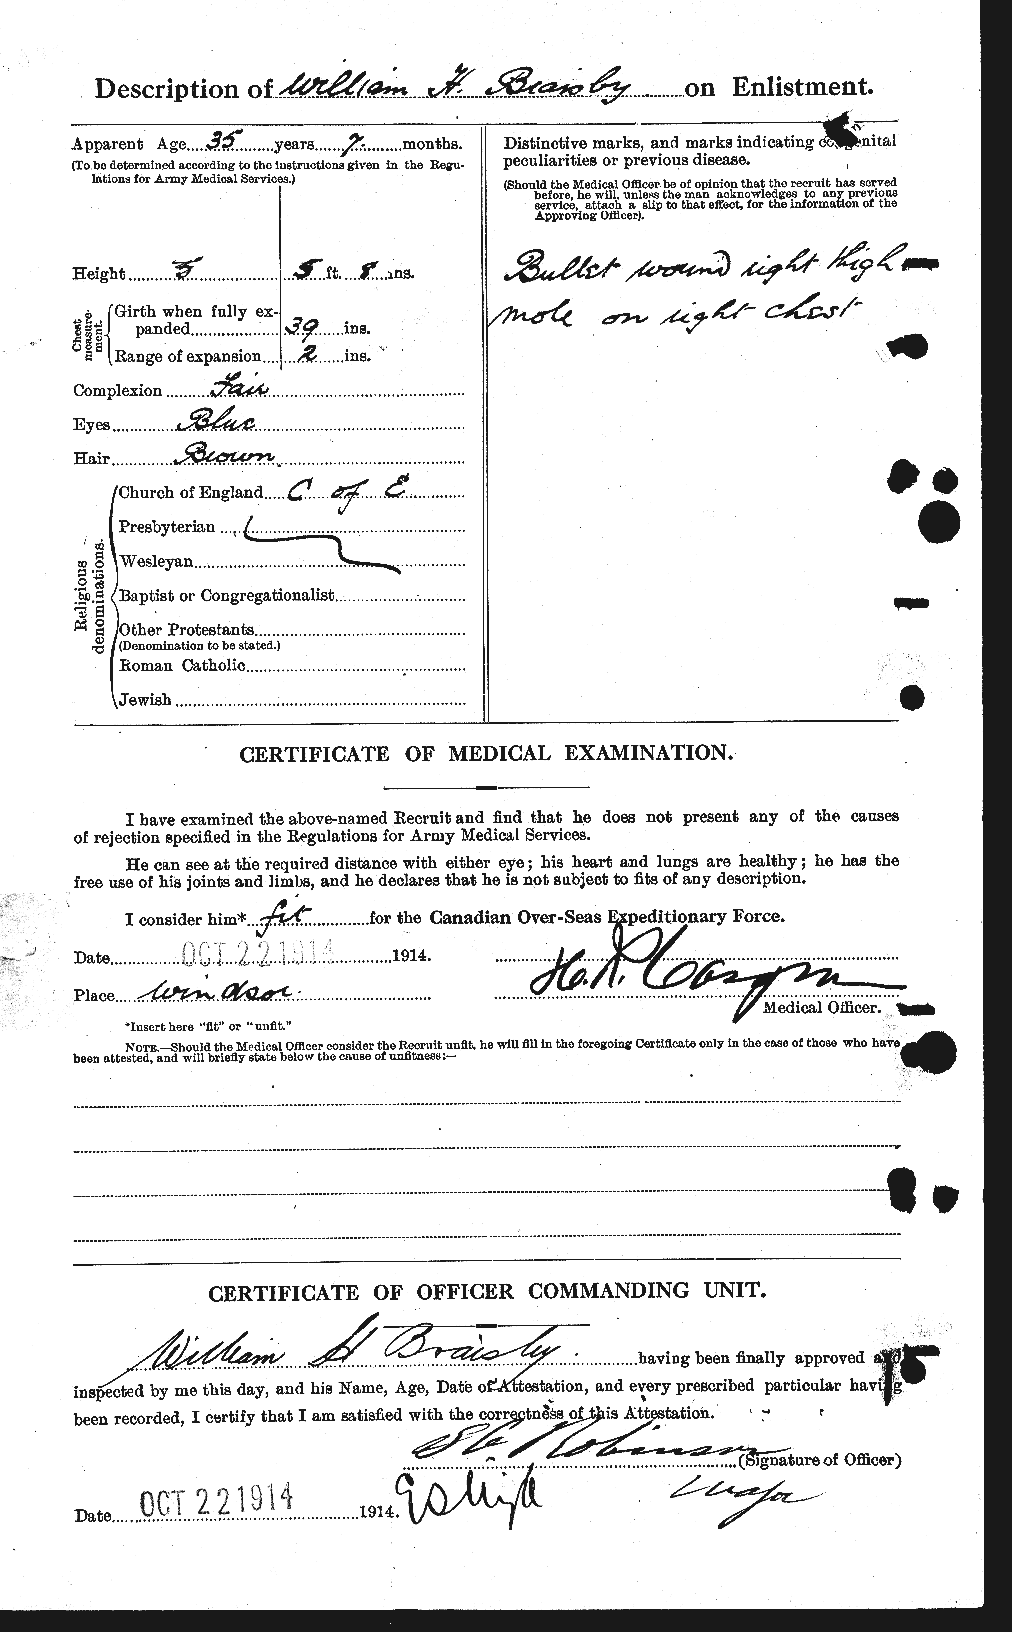 Description of William H. Braisby on Enlistment.
Apparent Age 35 years 7 months.
(To be determined according to the instructions given in the Regu-
lations for Army Medical Services.)
Height 5 5 ft. 8 ins.
Chest measure-ment.
Girth when fully ex-
panded 39 ins.
Range of expansion 2 ins.
Complexion Fair
Eyes Blue
Hair Brown
Religious denominations.
Church of England C of E
Presbyterian
Wesleyan
Baptist or Congregationalist
Other Protestants
(Denomination to be stated.)
Roman Catholic
Jewish
Distinctive marks, and marks indicating congenital
peculiarities or previous disease.
(Should the Medical Officer be of opinion that the recruit has served
before, he will, unless the man acknowledges to any previous
service, attach a slip to that effect, for the information of the
Approving Officer).
Bullet wound right thigh
mole on right chest
CERTIFICATE OF MEDICAL EXAMINATION.
I have examined the above-named Recruit and find that he does not present any of the causes
of rejection specified in the Regulations for Army Medical Services.
He can see at the required distance with either eye; his heart and lungs are healthy; he has the
free use of his joints and limbs, and he declares that he is not subject to fits of any description.
I consider him* fit for the Canadian Over-Seas Expeditionary Force.
Date OCT 22 1914 1914.
Place Windsor
Medical Officer.
*Insert here "fit" or "unfit."
NOTE.—Should the Medical Officer consider the Recruit unfit, he will fill in the foregoing Certificate only in the case of those who have
been attested, and will briefly state below the cause of unfitness:—
CERTIFICATE OF OFFICER COMMANDING UNIT.
William H Braisby having been finally approved and
inspected by me this day, and his Name, Age, Date of Attestation, and every prescribed particular having
been recorded, I certify that I am satisfied with the correctness of this Attestation.
Robinson (Signature of Officer)
Major
Date OCT 22 1914 1914.